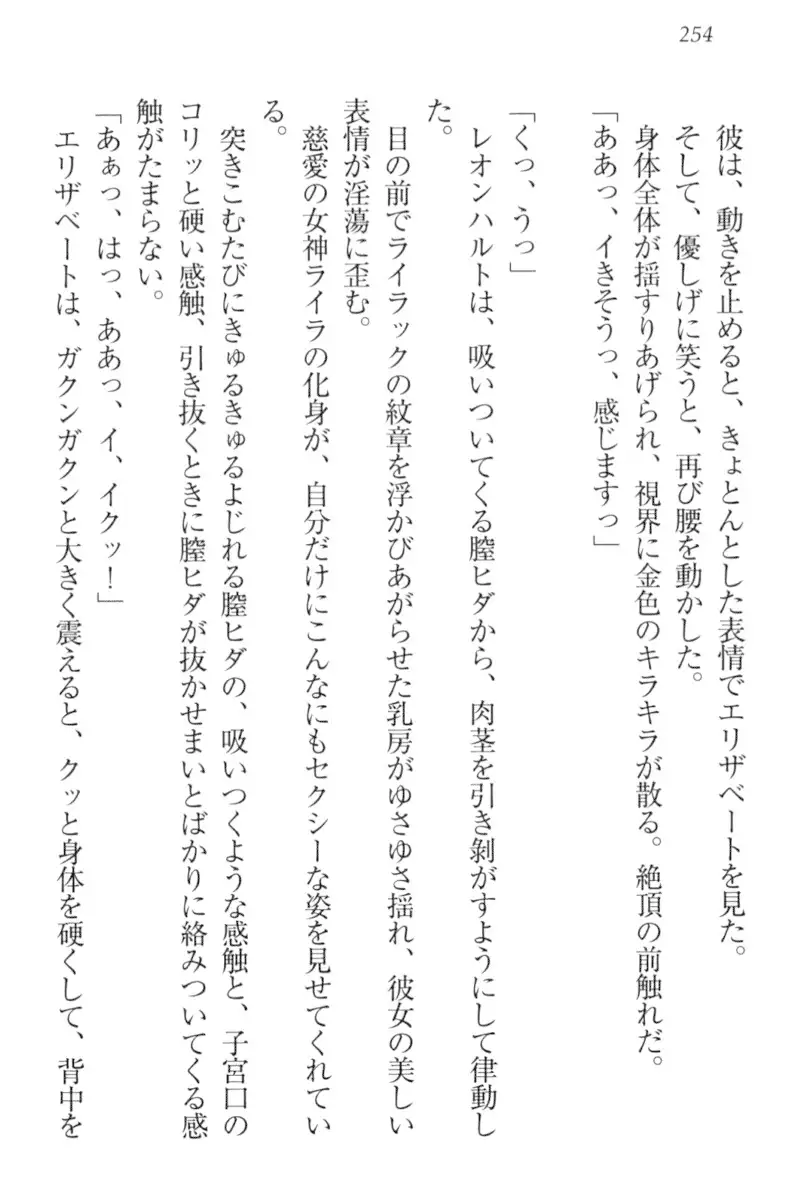 254
彼は、動きを止めると、きょとんとした表情でエリザベートを見た。
そして、優しげに笑うと、再び腰を動かした。
身体全体が揺すりあげられ、視界に金色のキラキラが散る。絶頂の前触れだ。
「ああっ、イきそうっ、感じますっ」
「くっ、うっ」
レオンハルトは、吸いついてくる膣ヒダから、肉茎を引き剥がすようにして律動し
た。
目の前でライラックの紋章を浮かびあがらせた乳房がゆさゆさ揺れ、彼女の美しい
表情が淫蕩に歪む。
慈愛の女神ライラの化身が、自分だけにこんなにもセクシーな姿を見せてくれてい
る。
突きこむたびにきゅるきゅるよじれる膣ヒダの、吸いつくような感触と、子宮口の
コリッと硬い感触、引き抜くときに膣ヒダが抜かせまいとばかりに絡みついてくる感
触がたまらない。
「あぁっ、はっ、ああっ、イ、イクッ！」
エリザベートは、ガクンガクンと大きく震えると、クッと身体を硬くして、背中を